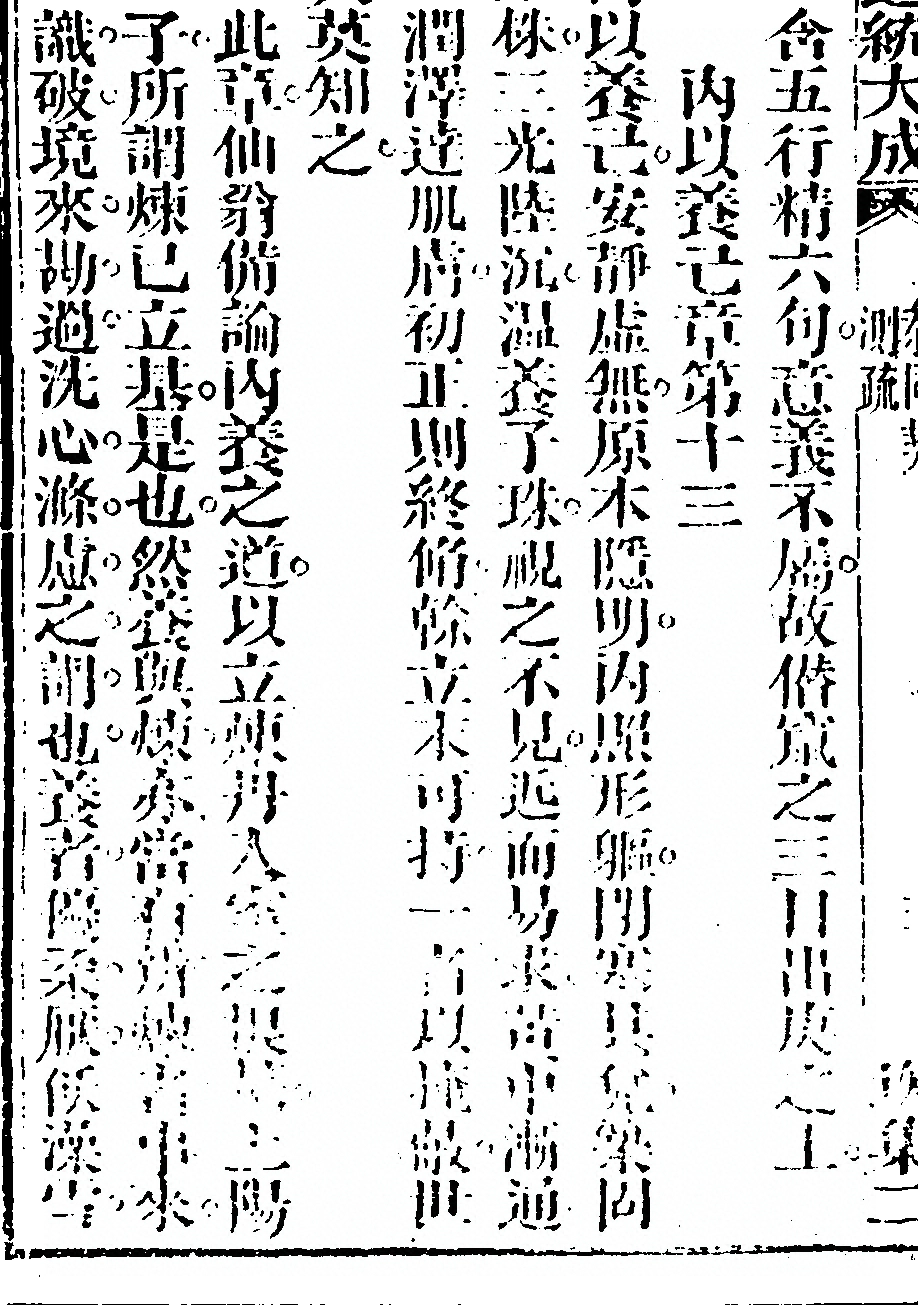 統大成
測疏
集二
含五行精六句意義不屬故僭竄之三日出庚之上
內以養己章第十三
以養己安靜虛無原本隱明內照形軀閉塞其兌築固
株三光陸沉温養子珠視之不見近而易求黃中漸通
潤澤達肌膚初正則終脩幹立末可持一者以掩蔽世
莫知之
此章仙翁備論內養之道以立煉丹入室之
陽
子所謂煉己立基是也然養與煉亦當有所
來
識破境來勘過洗心滌慮之謂也養者
柔
低